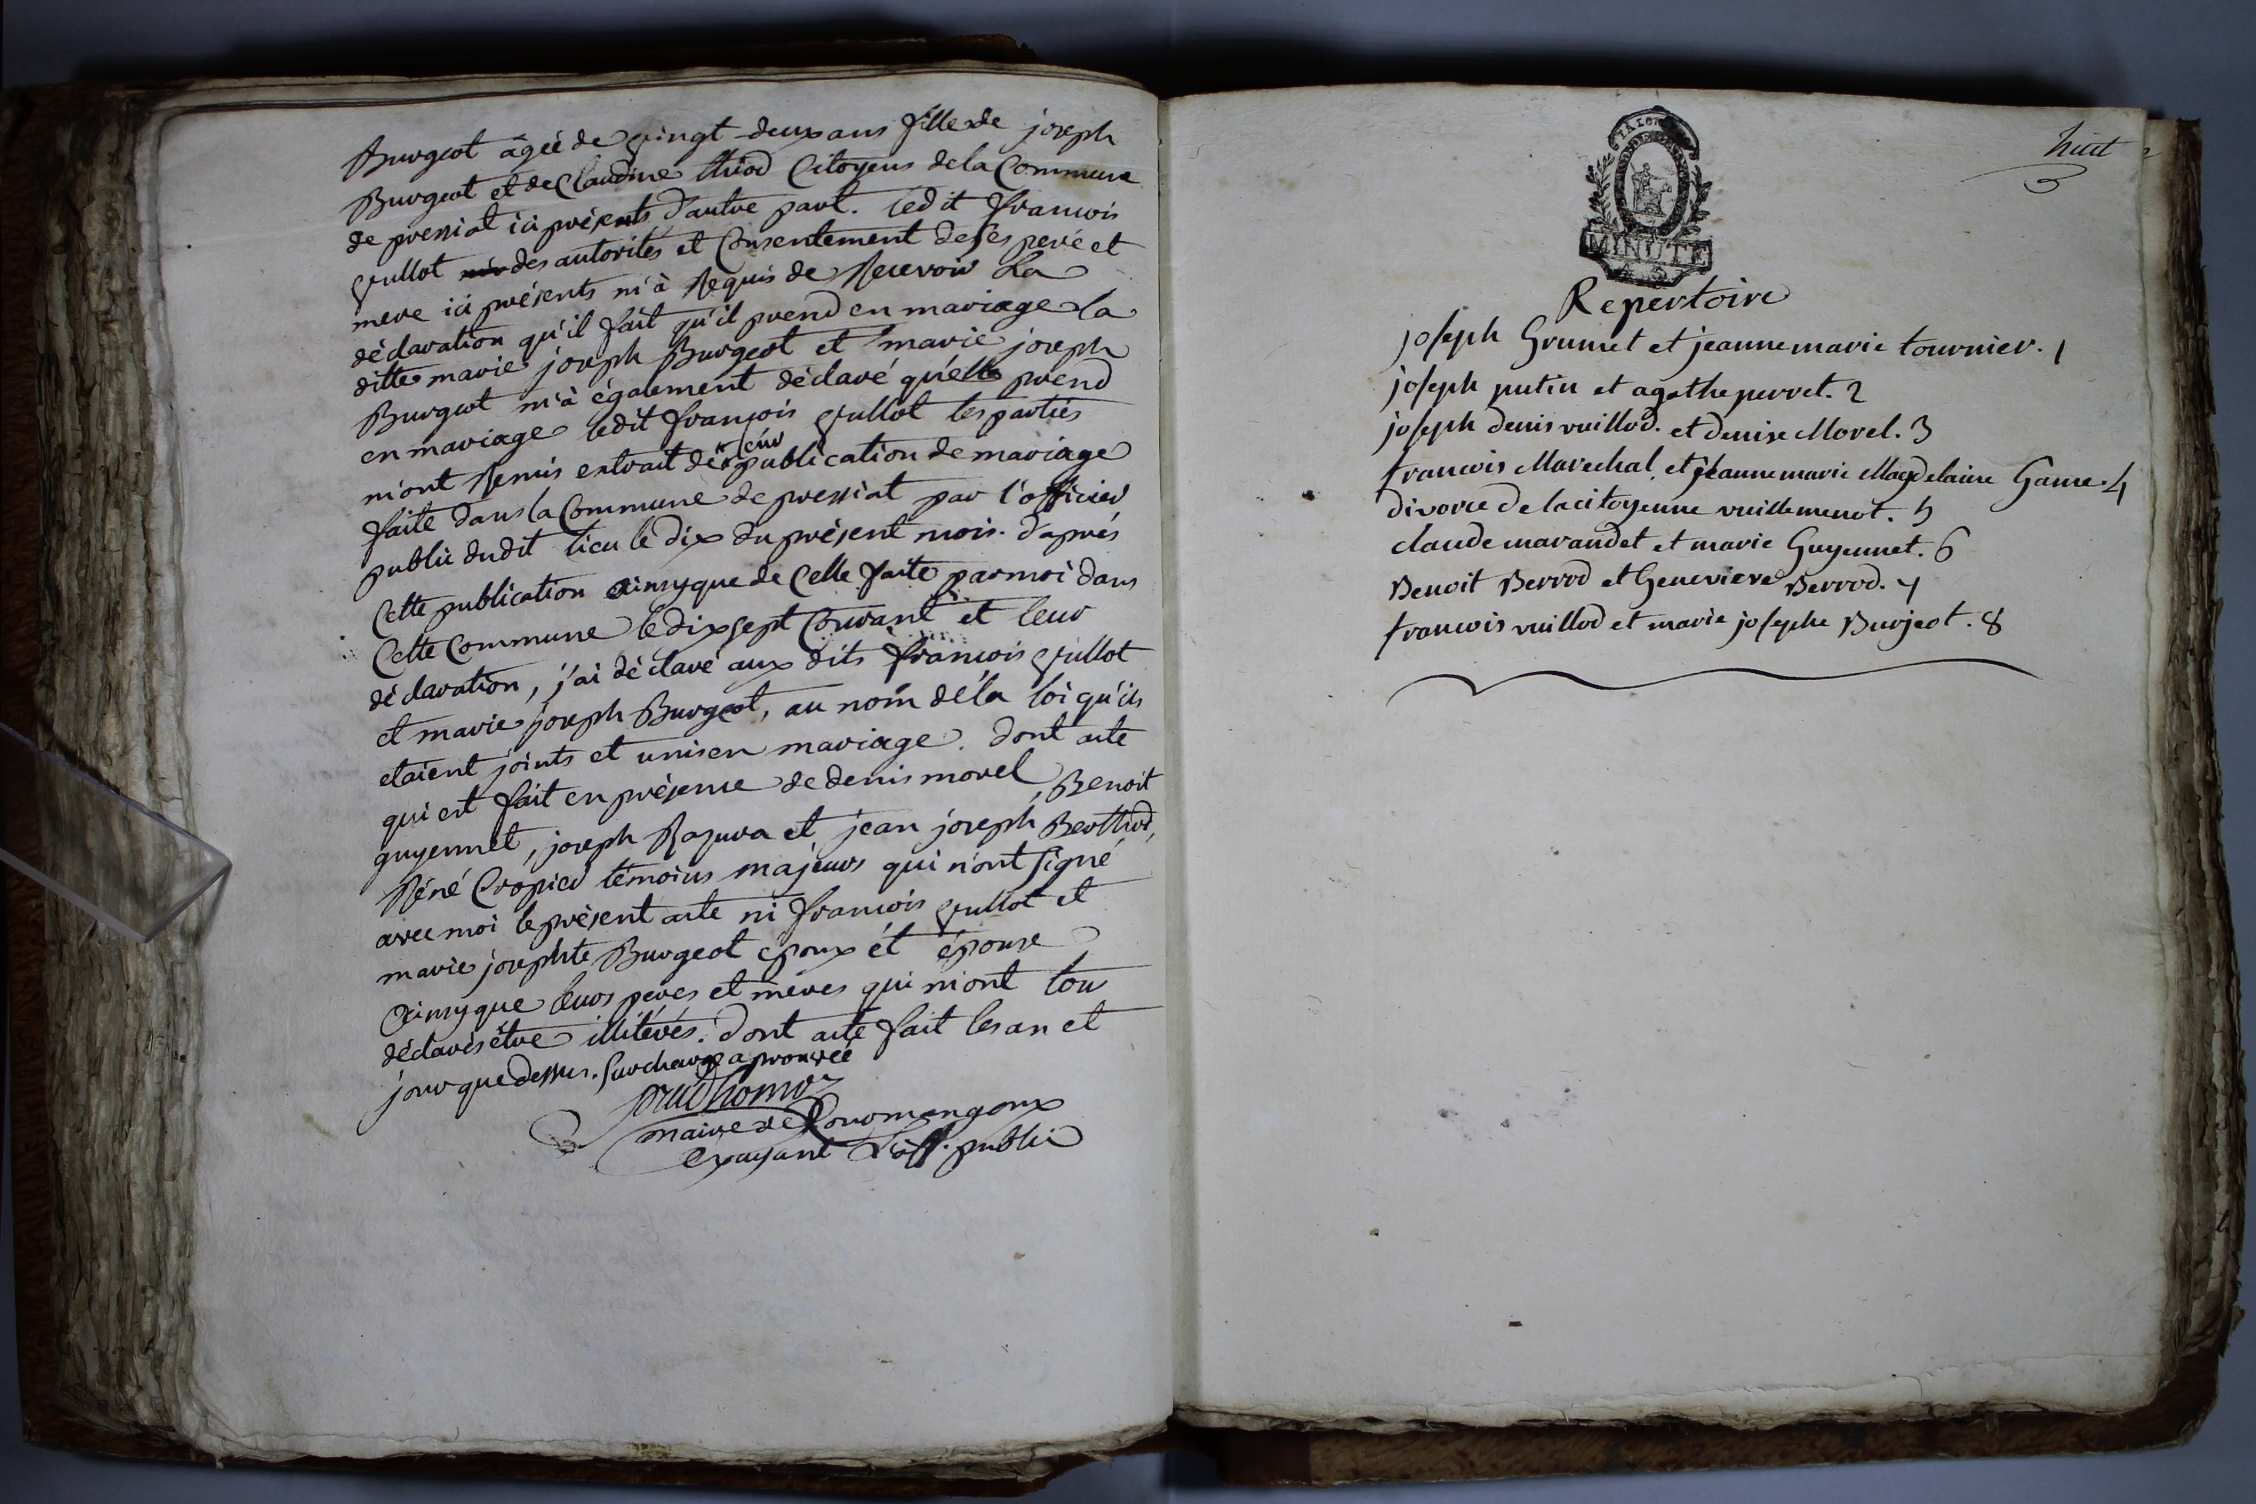 Burgeot âgée de vingt-deux ans fille de joseph
Burgeot et de Claudine thiod Citoyens de la Commune
de pressiat ici présents d'autre part. ledit francois
vullot des autorités et Consentement de ses pere et
mere ici présents m'à Requis de Recevoir La
déclaration qu'il fait qu'il prend en mariage la
ditte marie joseph Burgeot et marie joseph
Burgeot m'à également déclaré qu'elle prend
en mariage ledit francois vullot les parties
m'ont Remis extrait de leur publication de mariage
faite dans la Commune de pressiat par l'officier
public dudit lieu le dix du présent mois. d'aprés
Cette publication ainsy que de Celle faite par moi dans
Cette Commune le dix sept Courant et leur
déclaration, j'ai déclaré aux dits francois vullot
et marie joseph Burgeot, au nom de la loi qu'ils
etaient joints et unis en mariage. dont acte
qui est fait en présence de denis morel, Benoit
guyennet, joseph Razura et jean joseph Berthod,
Réné Cropier témoins majeurs qui n'ont signé
avec moi le présent acte ni francois vullot et
marie josephte Burgeot epoux et épouse
ainsy que leurs peres et meres qui m'ont tou
déclarés être illiterés. dont acte fait les an et
jour que dessus. surcharge aprouvée
prudhomme
maire de Rouomangoux
exerçant L'off. public
TALON
MINUTE
huit
Repertoire
joseph Grumet et jeanne marie tournier. 1
joseph putin et agathe perret. 2
joseph denis vuillod. et denise Morel. 3
francois Marechal. et jeanne marie Magdelaine Game. 4
divorce de la citoyenne vuillemenot. 5
claude marandet et marie Guyennet. 6
Benoit Berrod et Genevieve Berrod. 7
francois vuillod et marie josephe Burjeot. 8